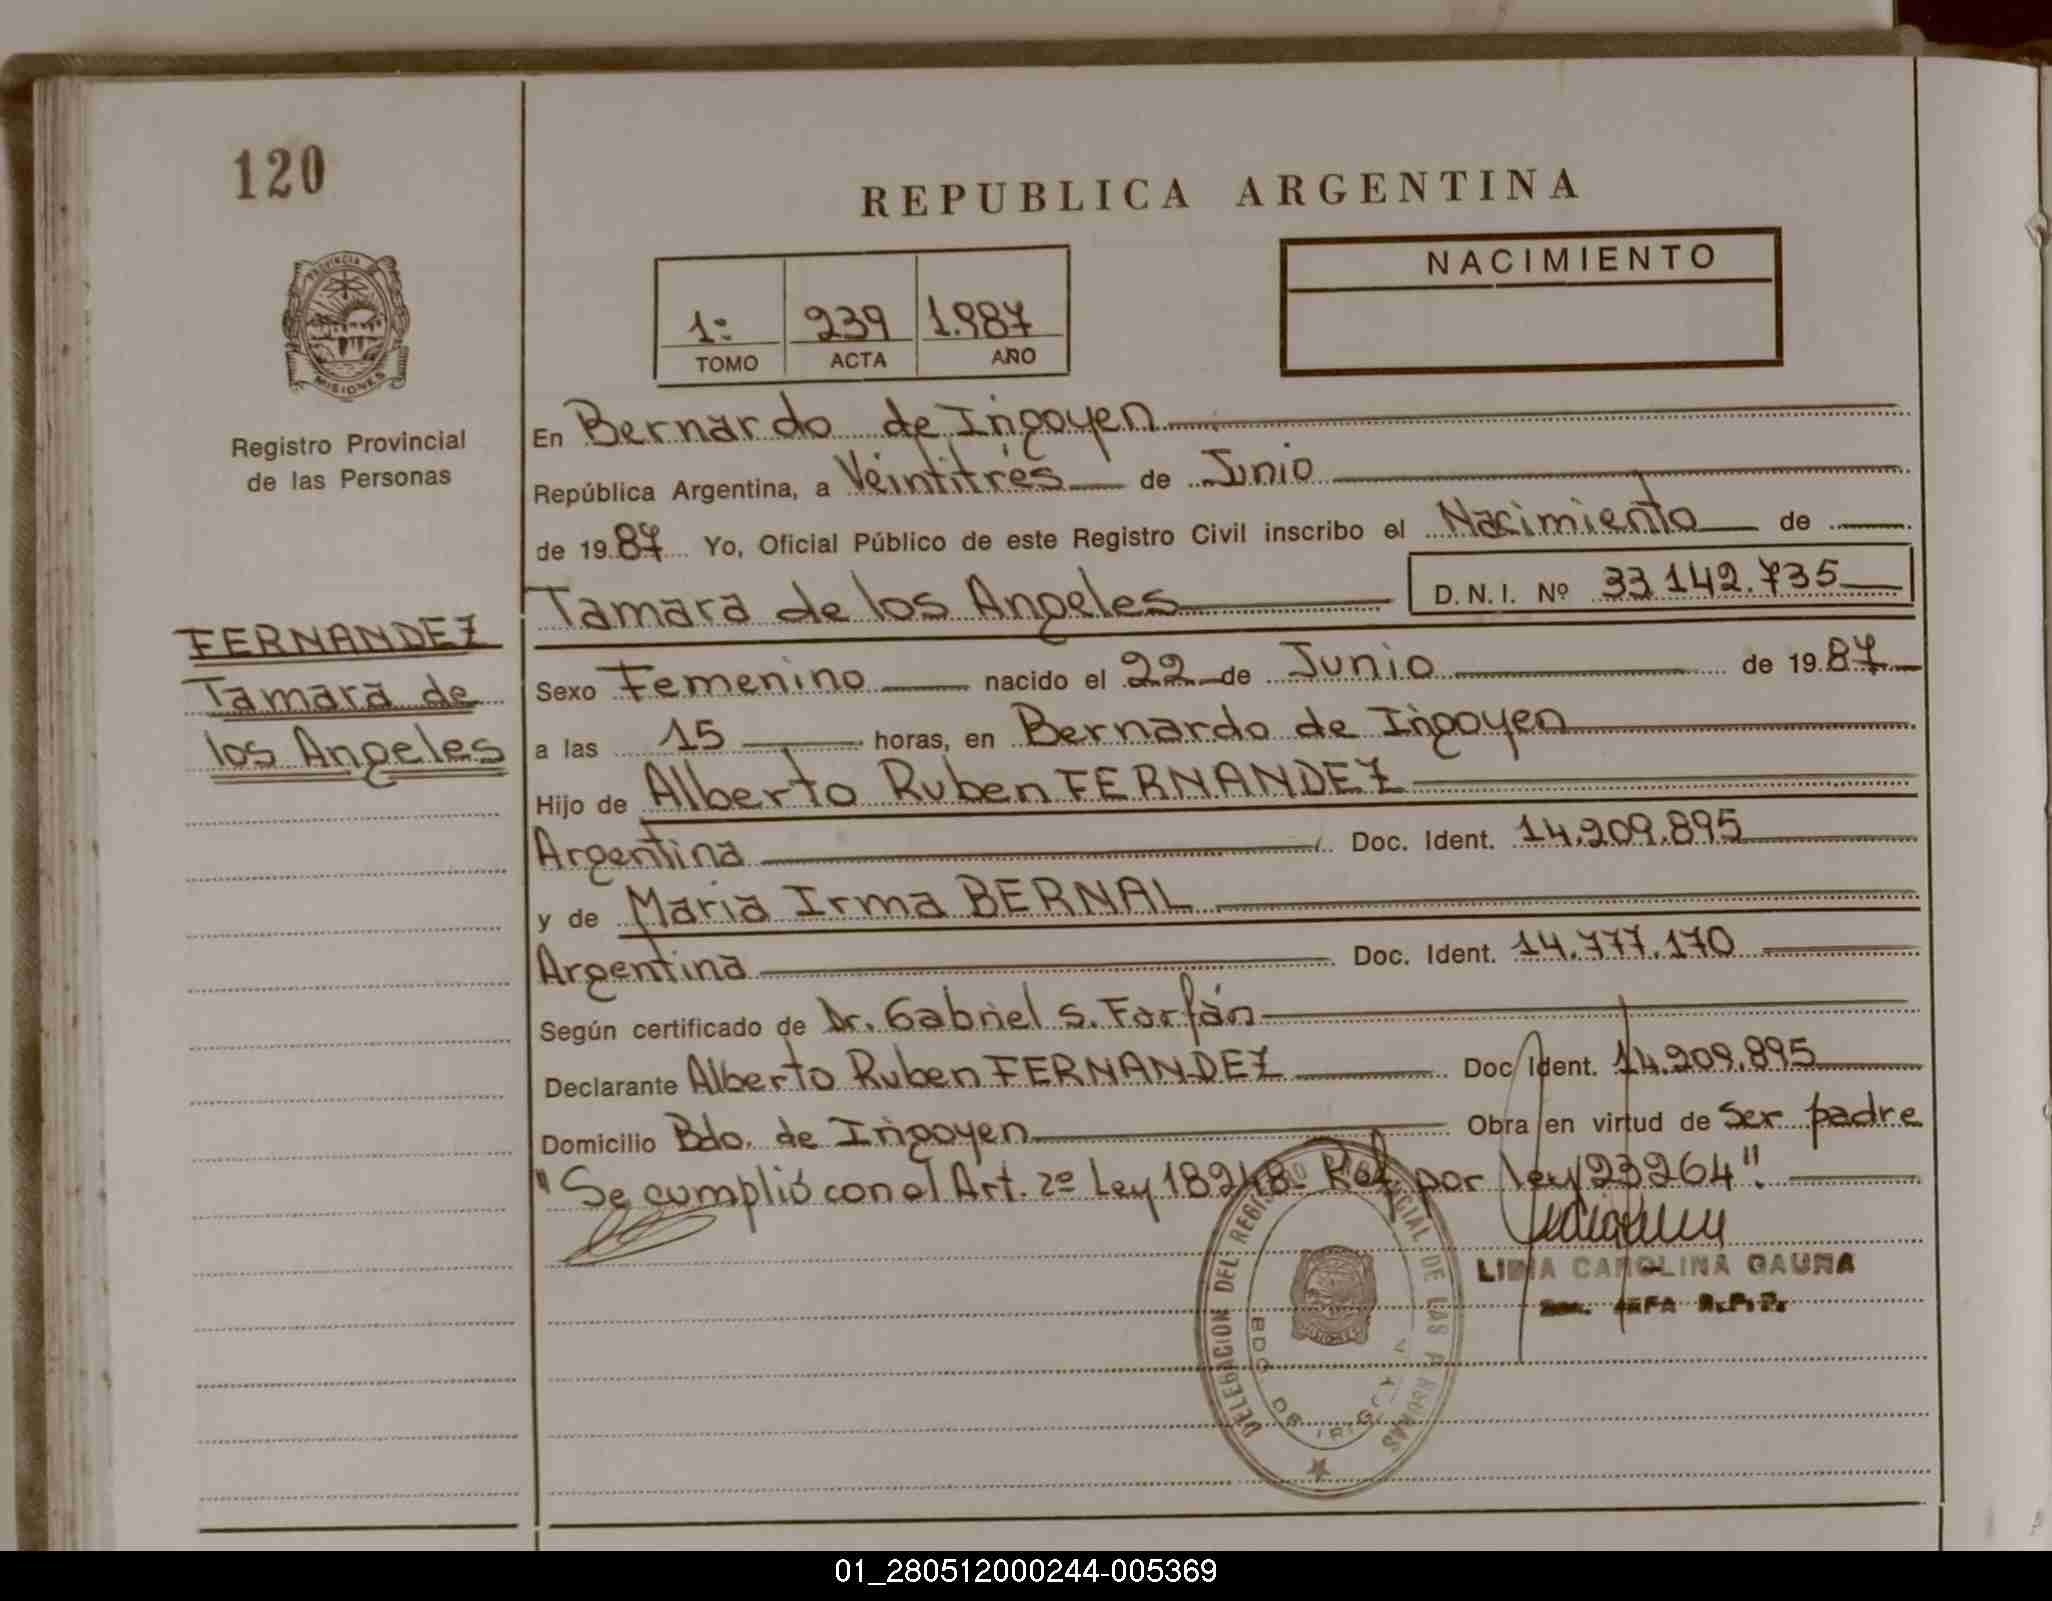 120
REPUBLICA ARGENTINA
NACIMIENTO
1º 239 1.987
TOMO ACTA AÑO
PROVINCIA
MISIONES
Registro Provincial
de las Personas
FERNANDEZ
Tamara de
los Angeles
En Bernardo de Irigoyen
República Argentina, a Veintitrés de Junio
de 1987 Yo, Oficial Público de este Registro Civil inscribo el Nacimiento de
Tamara de los Angeles D.N.I. Nº 33.142.735
Sexo Femenino nacido el 22 de Junio de 1987
a las 15 horas, en Bernardo de Irigoyen
Hijo de Alberto Ruben FERNANDEZ
Argentina Doc. Ident. 14.209.895
y de Maria Irma BERNAL
Argentina Doc. Ident. 14.777.170
Según certificado de Dr. Gabriel S. Farfán
Declarante Alberto Ruben FERNANDEZ Doc. Ident. 14.209.895
Domicilio Bdo. de Irigoyen Obra en virtud de Ser padre
"Se cumplió con el Art. 2º Ley 18248. Ref. por ley 23264".
CAROLINA GAUNA
JEFA R.P.P.
DELEGACION DEL REGISTRO PROVINCIAL DE LAS PERSONAS
BDO DE IRIGOYEN
01_280512000244-005369